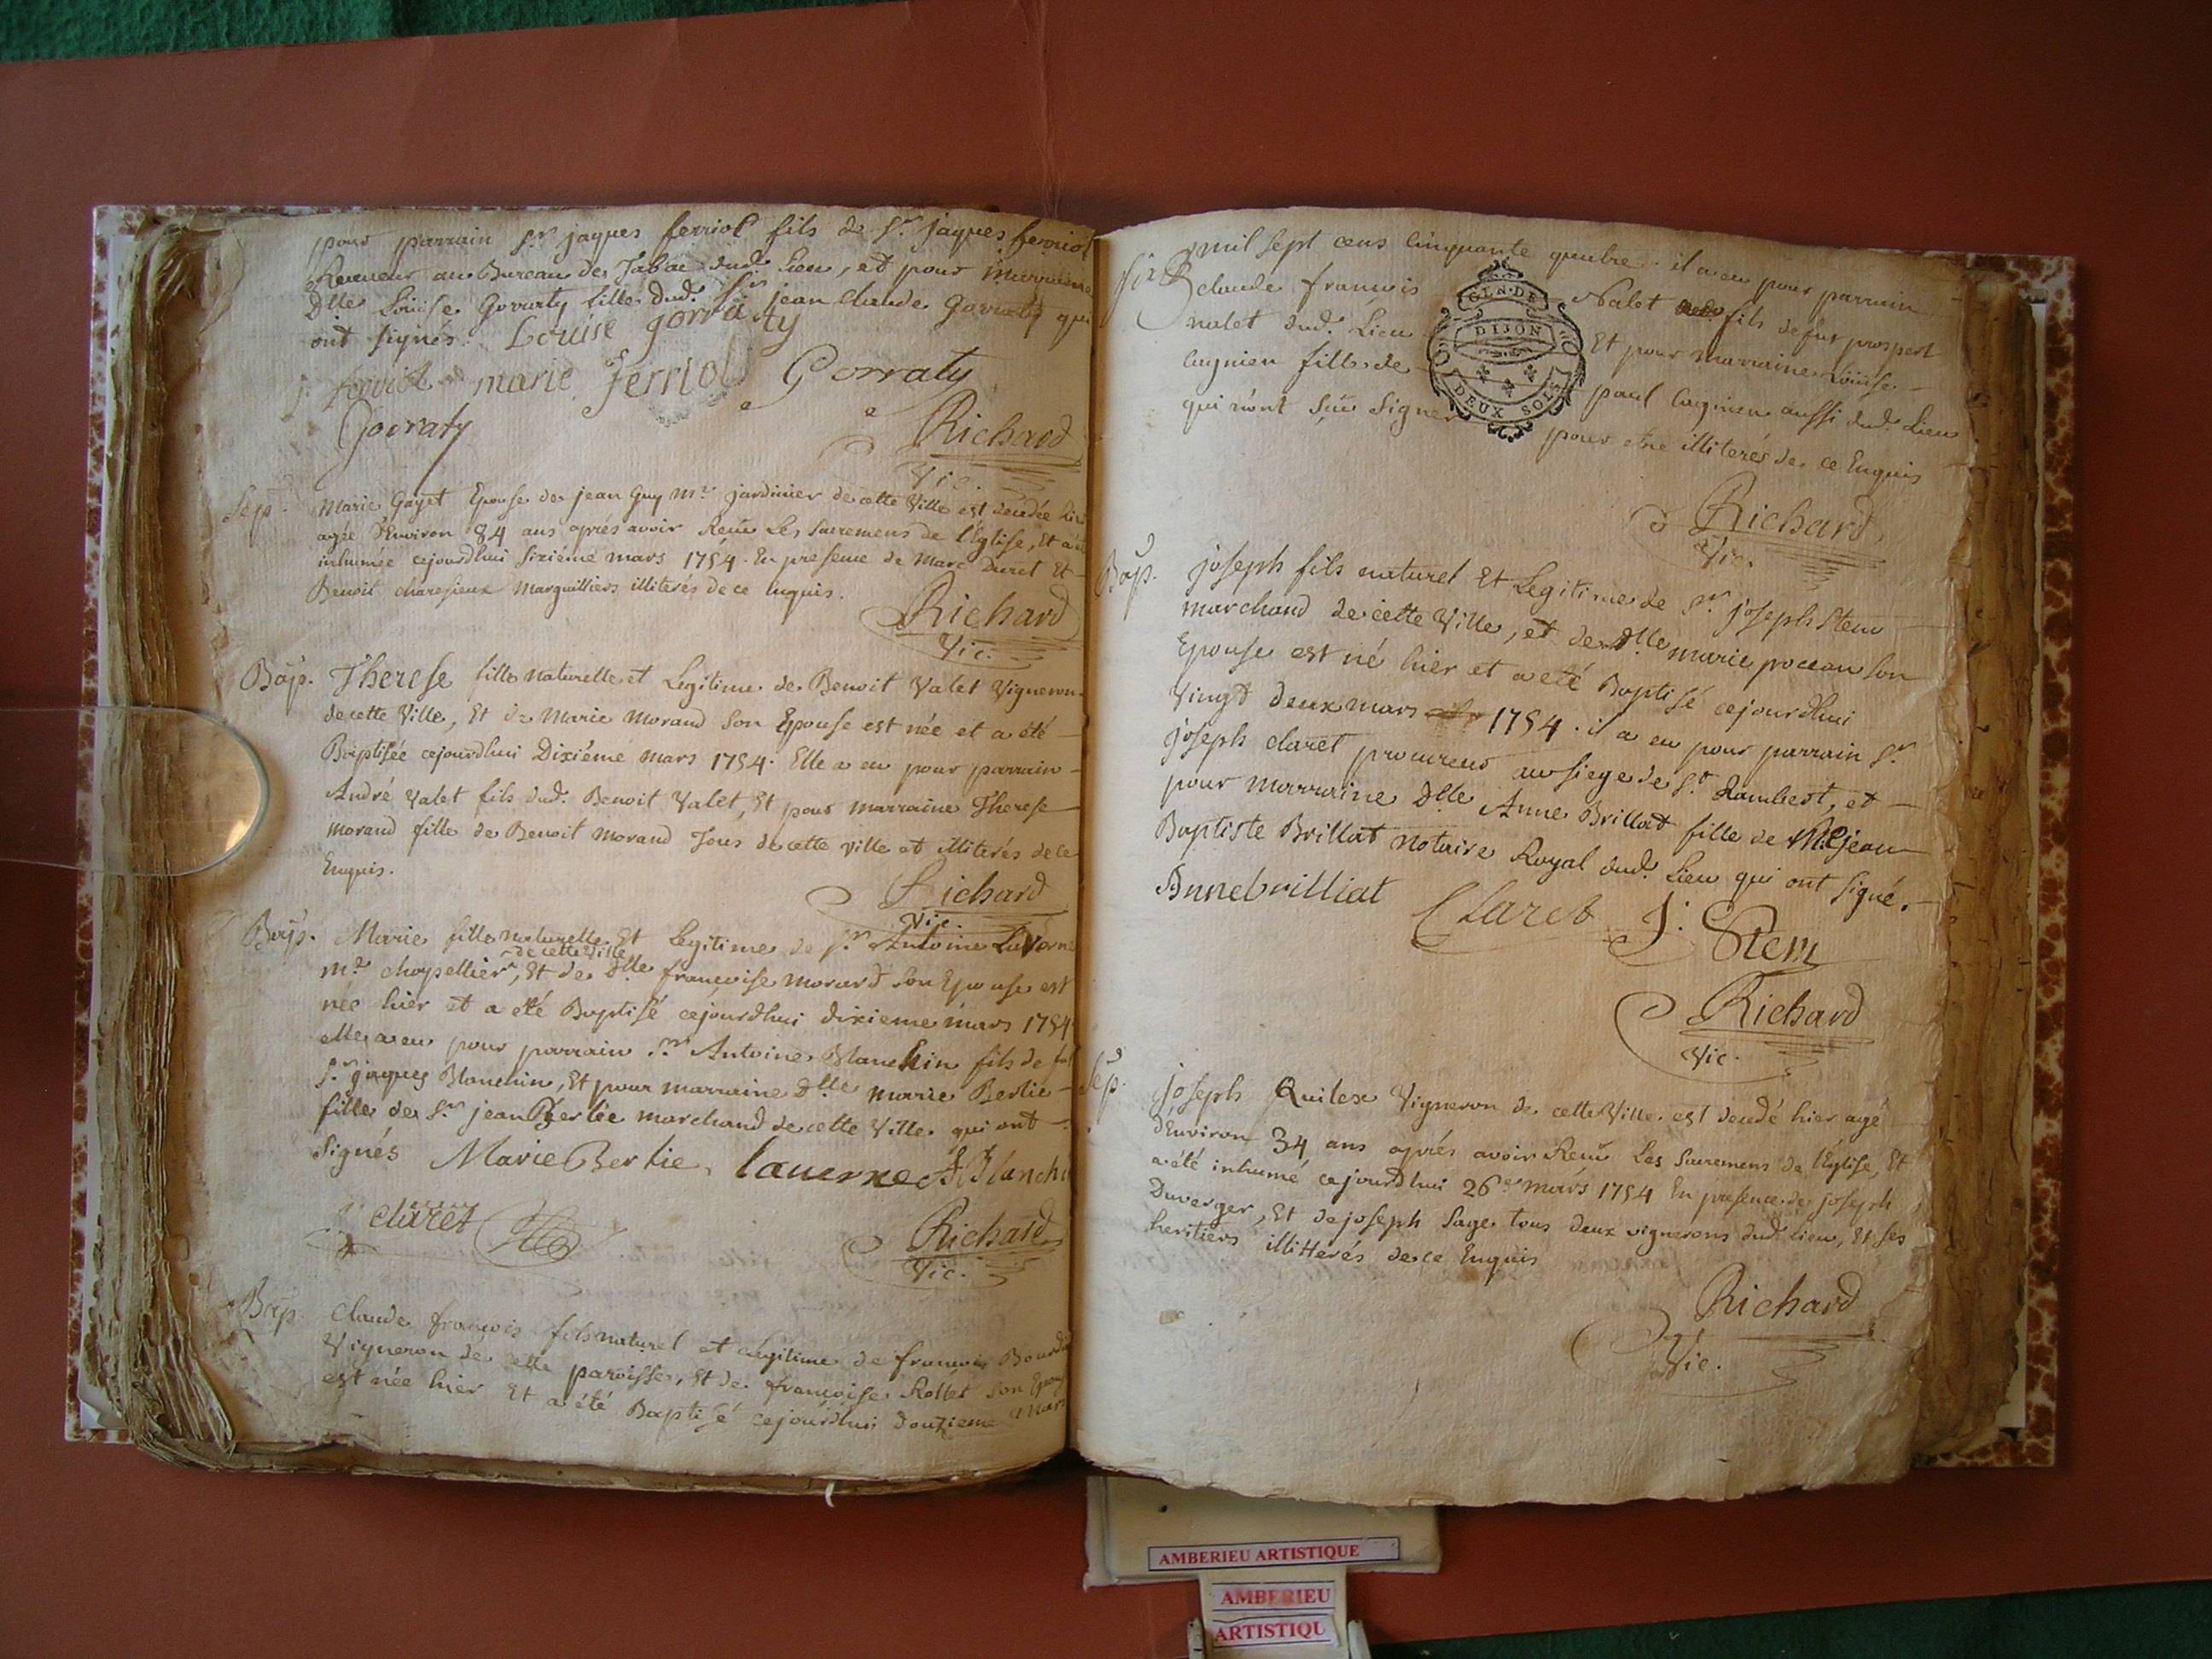 pour parrain Sr. jaques ferriol fils de Sr. jaques ferriol
Receveur au Bureau des Tabac dud. Lieu, et pour marraine
Dlle Loüise Gorraty fille dud. Sr jean Claude Gorraty qui
ont signés. Louise gorraty
j. ferriol marie Ferriol Gorraty
Gorraty
Richard
Vic.
Sep. Marie Gayet Epouse de jean Guy Mre jardinier de cette Ville est décédée hier
agée d'Environ 84 ans aprés avoir Reçu Les Sacremens de l'Eglise, Et a été
inhumée cejourdhui sixiéme mars 1754. En presence de Marc Duret Et
Benoit charesieux Marguilliers illiterés de ce Enquis.
Richard
Vic.
Bap. Therese fille naturelle et Legitime de Benoit Valet Vigneron
de cette Ville, Et de Marie Morand Son Epouse est née et a été
Baptisée cejourdhui Dixiéme mars 1754. Elle a eu pour parrain
André Valet fils dud. Benoit Valet, Et pour marraine Therese
Morand fille de Benoit Morand Tous de cette ville et illiterés de ce
Enquis.
Richard
Vic.
Bap. Marie fille naturelle Et Legitime de Sr. Antoine Laverne
de cette Ville
Mre chapellier, Et de Dlle françoise morard Son Epouse est
née hier et a eté Baptisé cejourdhui dixieme mars 1754
elle a eu pour parrain Sr Antoine Blanchin fils de
Sr. jaques Blanchin, Et pour marraine Dlle marie Berlie
fille de Sr. jean Berlie marchand de cette Ville qui ont
Signés Marie Berlie, laverne A Blanchi
claret
Richard
Vic.
Bap. Claude françois fils naturel et Legitime de françois
Vigneron de cette paroisse, Et de françoise Rollet Son Epouse
est née hier Et a été Baptisé cejourdhui douzieme Mars
mil sept cens Cinquante quatre. il a eu pour parrain
claude françois Nalet fils de feu prospert
nalet dud. Lieu Et pour marraine Loüise
Cagnien fille de paul Cagnien aussi dud. Lieu
qui n'ont Sçu Signer pour etre illiterés de ce Enquis
GEN. DE
DIJON
DEUX SOLS
Richard
Vic.
Bap. joseph fils naturel Et Legitime de Sr. joseph Stem
marchand de cette Ville, et de Dlle marie poccau Son
Epouse est né hier et a eté Baptisé cejourdhui
Vingt deux mars 1754. il a eu pour parrain Sr.
joseph claret procureur au siege de St. Rambert, et
pour Marraine Dlle Anne Brillat fille de Me jean
Baptiste Brillat Notaire Royal dud. Lieu qui ont Signé.
Annebrilliat Claret J. Stem
Richard
Vic.
Sep. joseph Quilex Vigneron de cette Ville est décédé hier agé
d'Environ 34 ans aprés avoir Reçu Les Sacremens de l'Eglise, Et
a été inhumé cejourdhui 26e mars 1754 En presence de joseph
Duverger, Et de joseph Sage tous deux vignerons dud. lieu, Et ses
heritiers illittérés de ce Enquis
Richard
Vic.
AMBERIEU ARTISTIQUE
AMBERIEU
ARTISTIQU